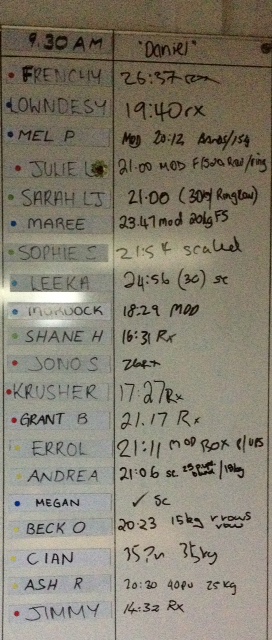 9.30 AM "Daniel"
FRENCHY 26:37
LOWNDESY 19:40 rx
MEL P MOD 20:12
JULIE L 21:00 MOD
SARAH LJ 21:00 (30kg Ring Row)
MAREE 23.47 mod 20kg FS
SOPHIE S 21:54 scaled
LEEKA 24:56 (30) sc
MURDOCK 18.29 MOD
SHANE H 16:31 Rx
JONO S
KRUSHER 17:27 Rx
GRANT B 21.17 Rx
ERROL 21:11 MOD BOX P/UPS
ANDREA 21:06 sc /18kg
MEGAN ✓ sc
BECK O 20:23 15kg rows
CIAN 35kg
ASH R 20:30 40pu 25kg
JIMMY 14:32 Rx